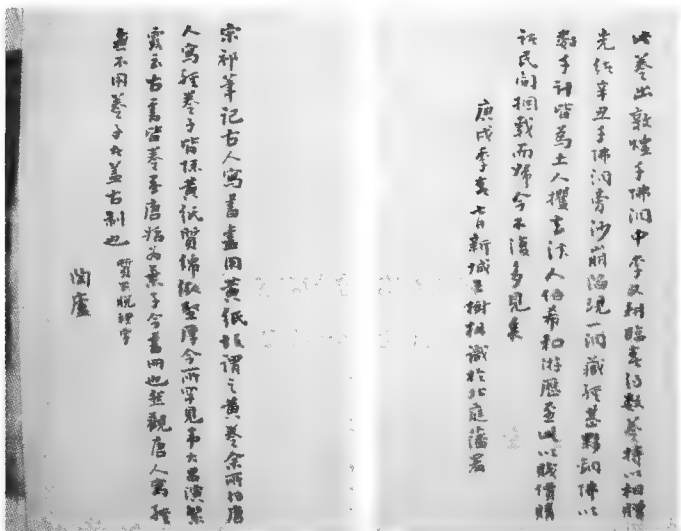 此卷出敦煌千佛洞中李文耕臨毫约數卷持以相贈
光绪辛丑千佛洞旁沙崩陷現一洞藏經甚夥銅佛以
數千計皆為土人攫去法人伯希和游歷至此以賤價購
諸民间捆載而歸今不復多見矣
庚戌季 七日新城王樹枏識於北庭藩署
宋祁筆記古人寫書盡用黃纸故謂之黃卷余所得唐
人寫經卷子皆係黄纸質綿緻堅厚今所罕見 大昌演繁
露云古書皆卷至唐始為葉子今書冊也然觀唐人寫經
無不用卷子 蓋古制也 質 脱理字
陶廬